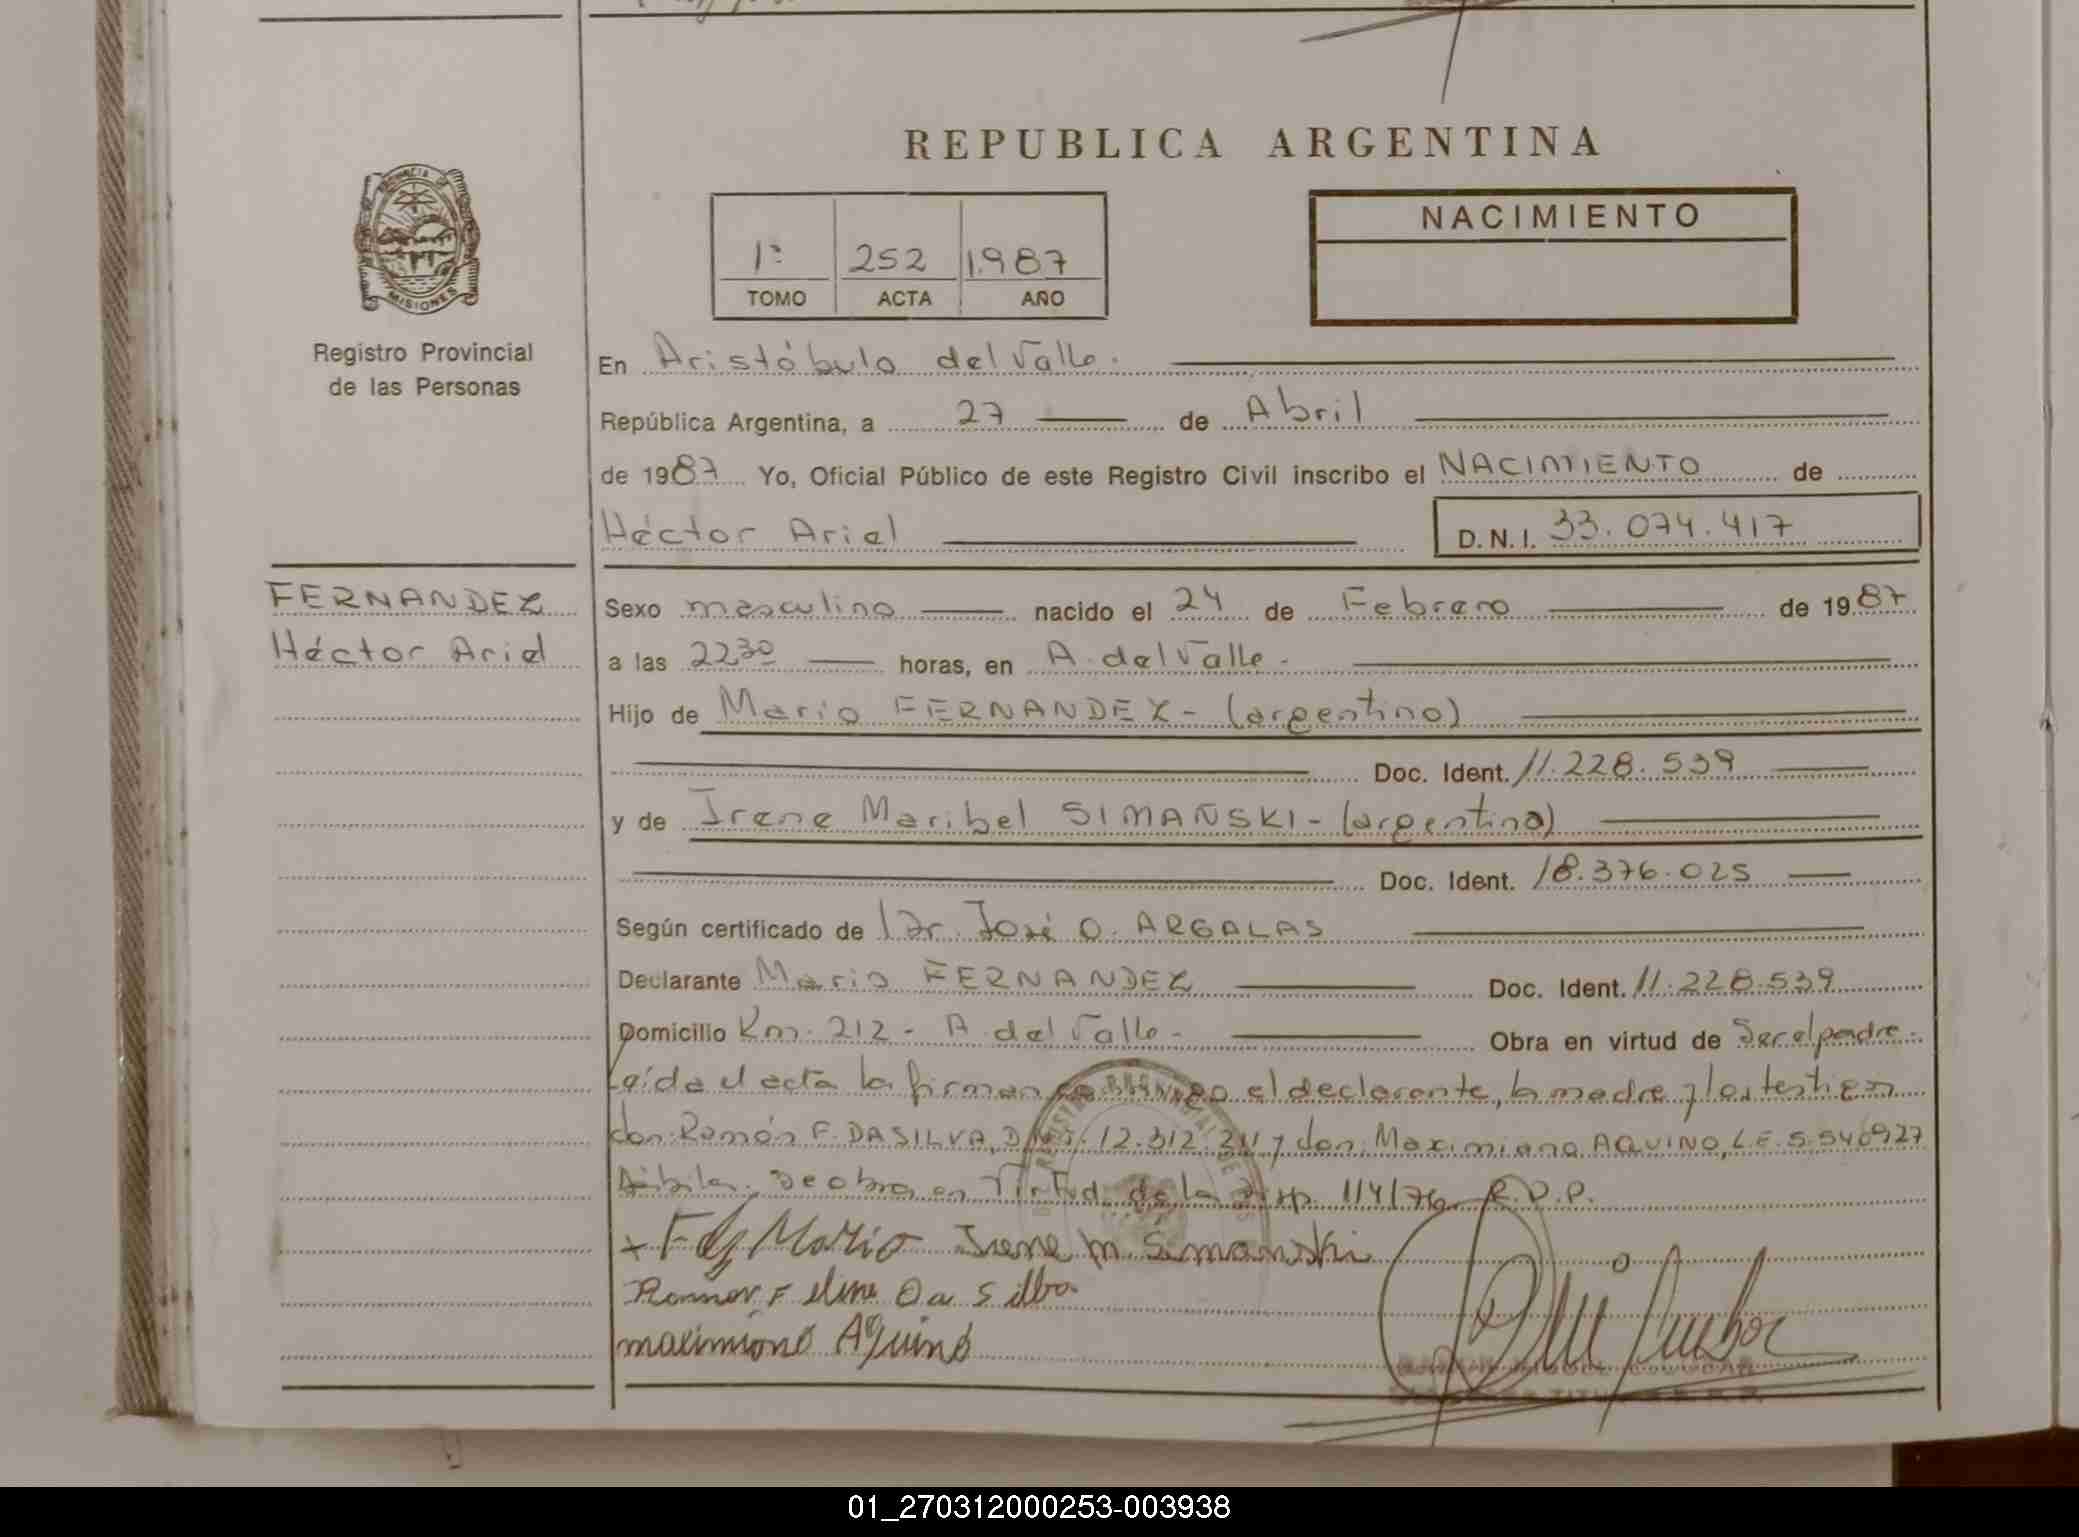 REPUBLICA ARGENTINA
PROVINCIA DE
MISIONES
Registro Provincial
de las Personas
1º 252 1.987
TOMO ACTA AÑO
NACIMIENTO
En Aristóbulo del Valle.
República Argentina, a 27 de Abril
de 1987 Yo, Oficial Público de este Registro Civil inscribo el NACIMIENTO de
Héctor Ariel D.N.I. 33.074.417
FERNANDEZ
Héctor Ariel
Sexo masculino nacido el 24 de Febrero de 1987
a las 22 30 horas, en A. del Valle.-
Hijo de Mario FERNANDEZ - (argentino)
Doc. Ident. 11.228.539
y de Irene Maribel SIMAÑSKI - (argentina)
Doc. Ident. 18.376.025
Según certificado de Dr. José O. ARGALAS
Declarante Mario FERNANDEZ Doc. Ident. 11.228.539
Domicilio Km. 212 - A. del Valle - Obra en virtud de Ser el padre.-
Leída el acta la firman conmigo el declarante, la madre y los testigos
don: Ramón F. DA SILVA, D.N.I. 12.312.211 y don: Maximiano AQUINO, L.E. 5.540927
Se obra en Virtud de la Disp. 114/76 R.P.P.
Mario Irene M. Simanski
Da Silba
maximiono Aquino
01_270312000253-003938